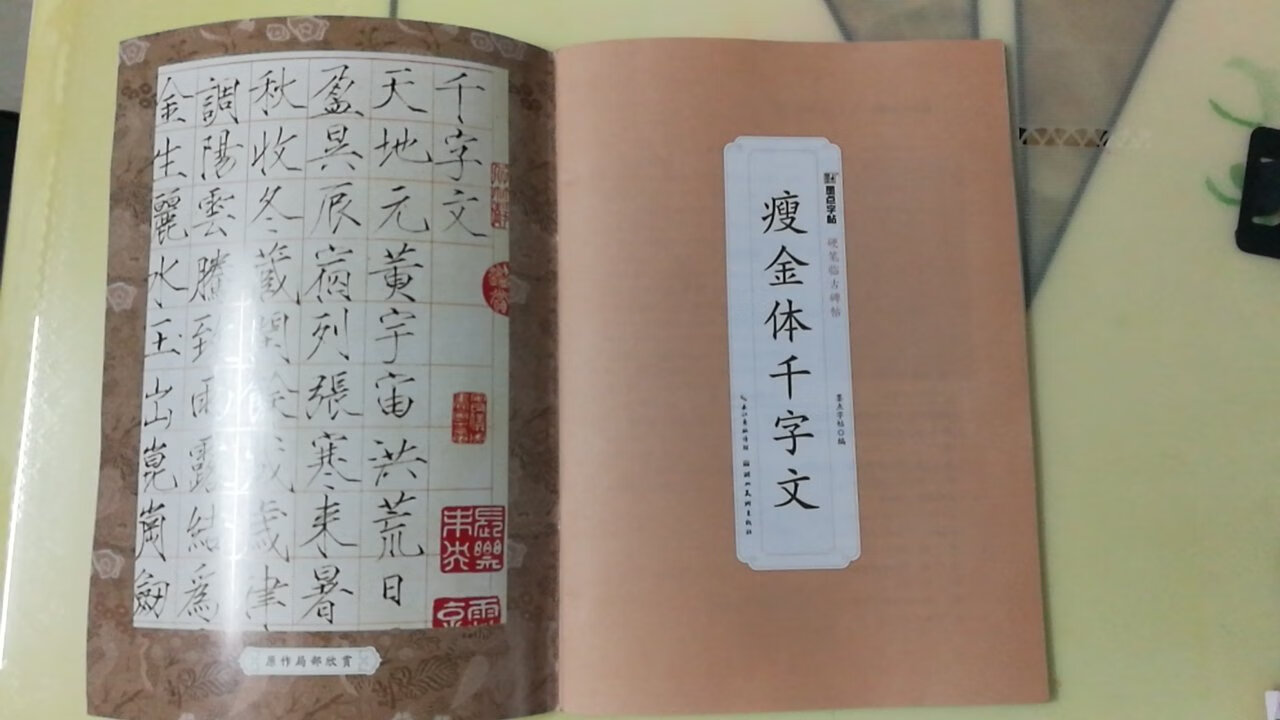 千字文
天地元黄宇宙洪荒日
盈昃辰宿列張寒来暑
秋收冬藏閏餘成歲律
調陽雲騰致雨露結爲
金生麗水玉出崑崗劔
原作局部欣赏
墨点字帖 硬笔临古碑帖
墨点字帖◎编
瘦金体千字文
长江出版传媒 湖北美术出版社